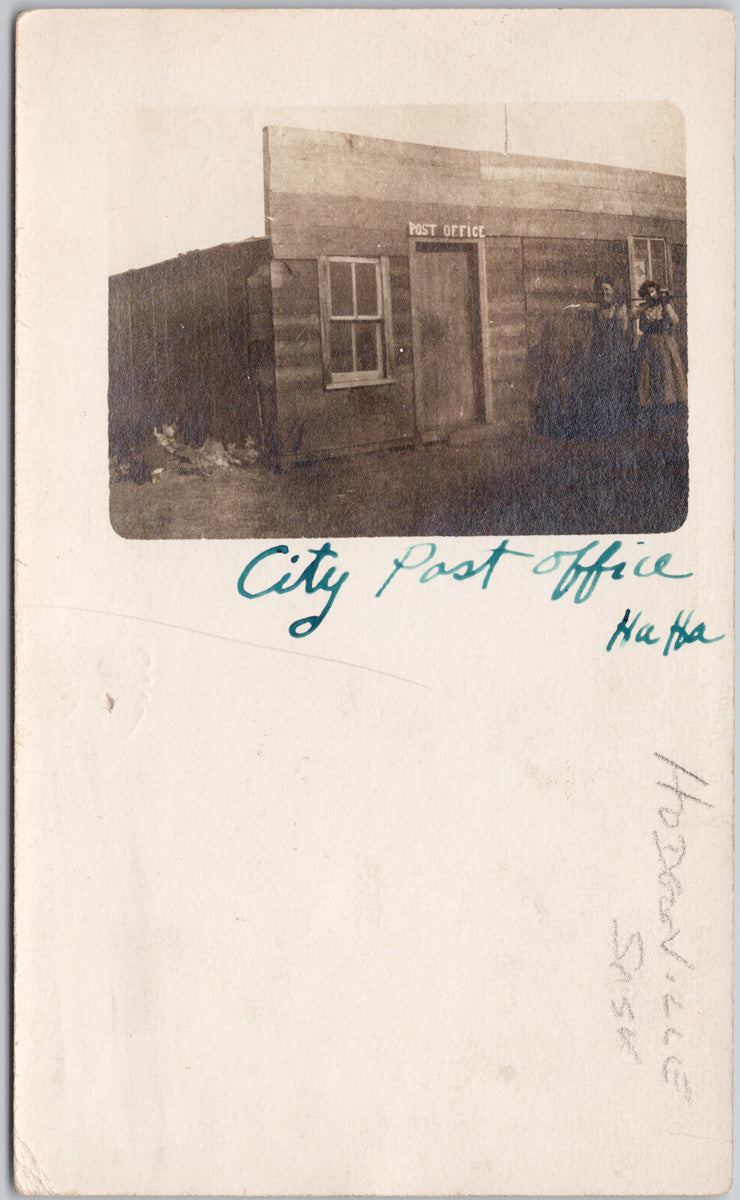 POST OFFICE
City Post Office
Ha Ha
HODOOVILLE
SASK